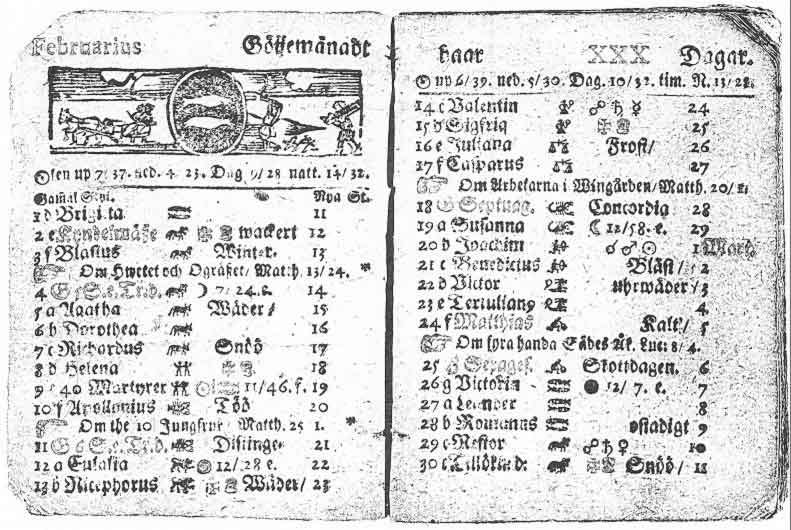 Februarius Göijemänadt
Solen up 7/37. ned. 4 23. Dag 9/28 natt. 14/32.
Gamal Styl. Nya St.
1 d Brigitta 11
2 e Kyndelmässe wackert 12
3 f Blasius Winter. 13
Om Hwetet och Ogräset/ Matth. 13/24.
4 G 5 S. e. Tr. d. ☽ 7/24. e. 14
5 a Agatha Wäder/ 15
6 b Dorothea 16
7 c Richardus Snöö 17
8 d Helena 18
9 e 40 Martyrer 11/46. f. 19
10 f Apollonius Töö 20
Om the 10 Jungfrur Matth. 25 1.
11 G 6 S. e. Tr. d. Distinge 21
12 a Eulalia 12/28 e. 22
13 b Nicephorus Wäder/ 23
haar XXX Dagar.
☉ up 6/39. ned. 5/30. Dag. 10/32. tim. N. 13/28.
14 c Valentin ☍ ♄ ☿ 24
15 d Sigfrid 25
16 e Juliana Frost/ 26
17 f Casparus 27
Om Arbetarna i Wingården/ Matth. 20/1.
18 G Septuag. Concordia 28
19 a Susanna ☾ 12/58. e. 29
20 b Joachim ☌ ♂ ☉ 1 Mart.
21 c Benedictus Bläst/ 2
22 d Victor uhrwäder/ 3
23 e Tertulian9 4
24 f Matthias Kalt/ 5
Om fyra handa Sädes Åk. Luc: 8/4.
25 G Sexages. Skottdagen. 6
26 g Victorin ● 12/7. e. 7
27 a Leander 8
28 b Romanus ostadigt 9
29 c Nestor ☍ ♄ ♀ 10
30 c Snöö/ 11